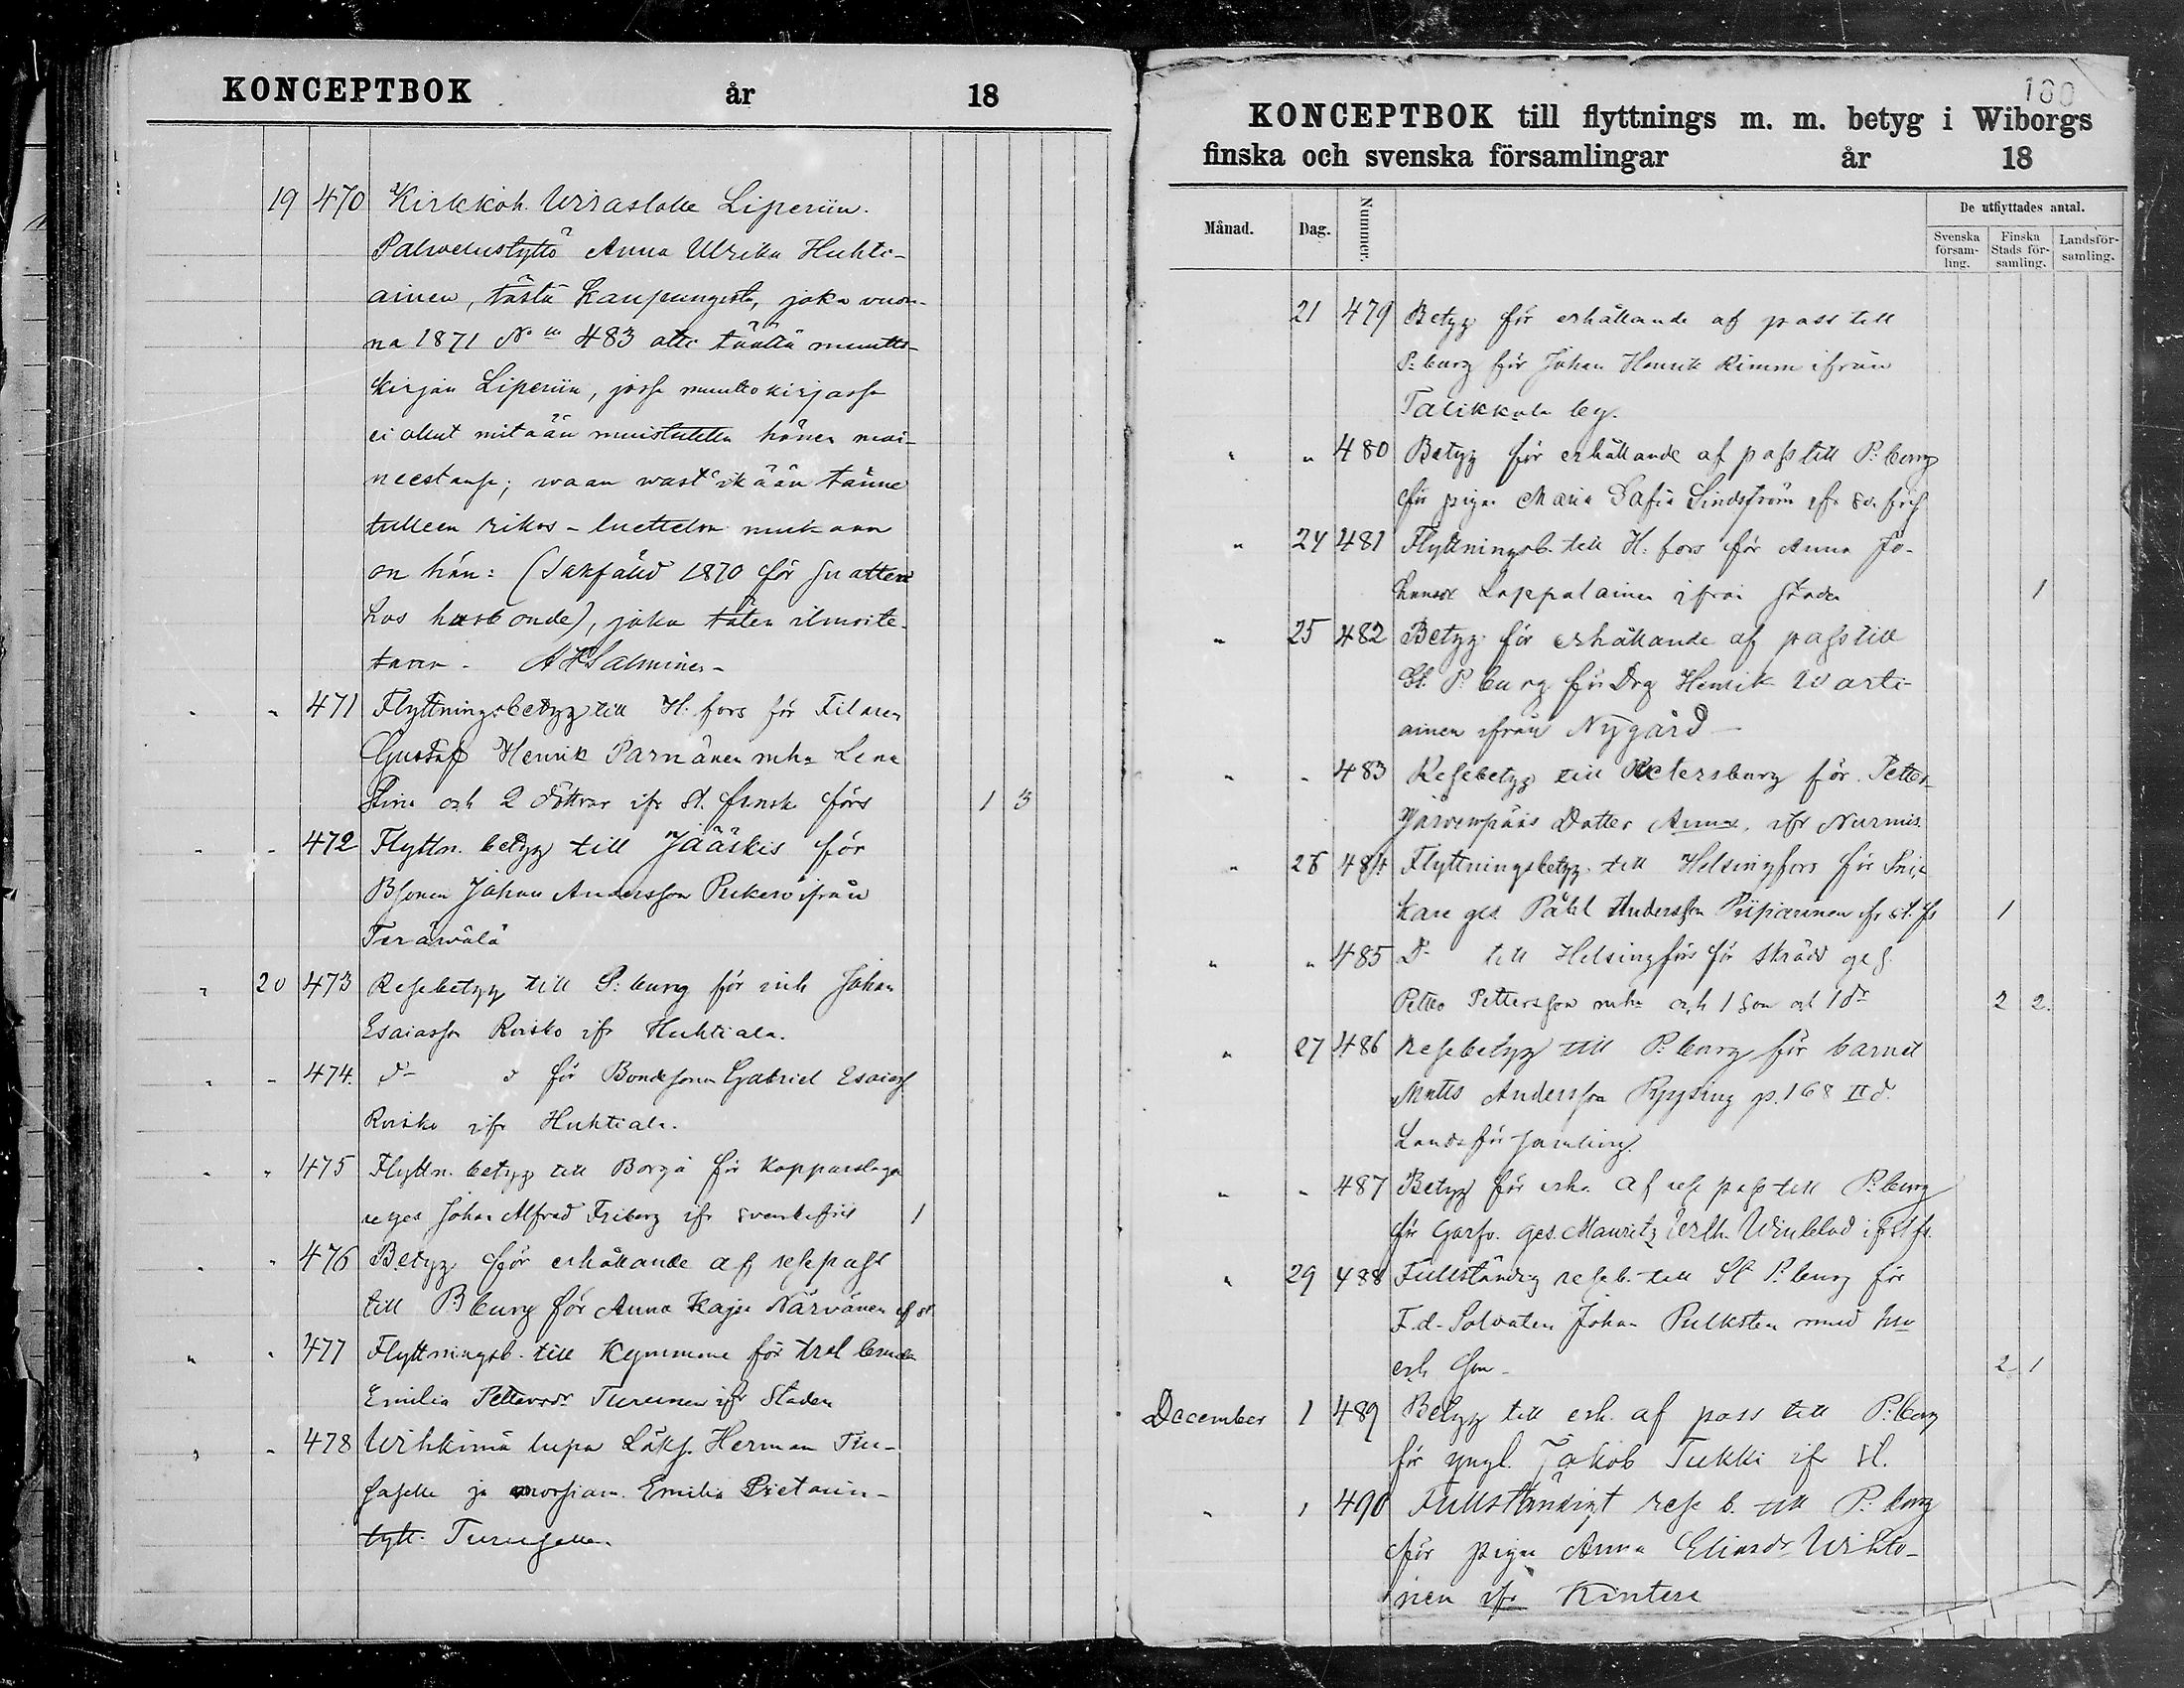 KONCEPTBOK år 18
19 470 Kirkkoh. Wirastolle Liperiin.
Palwelustyttö Anna Ulrika Huhti-
ainen, tästä Kaupungista, joka vuon-
na 1871 No 483 otti täältä muutto-
kirjan Liperiin, jossa muuttokirjassa
ei ollut mitään muistutettu hänen mai-
neestansa; waan wast'ikään tänne
tulleen rikos-luettelon mukaan
on hän: (Sakfälld 1870 för snatteri
hos husbonde), joka täten ilmoite-
taan. A H Salminen
" " 471 Flyttningsbetyg till H:fors för Filaren
Gustaf Henrik Parnänen m hu Lena
Stina och 2 döttrar ifr St. finsk förs 1 3
" " 472 Flyttn. betyg till Jääskis för
Bsonen Johan Andersson Pukero ifrån
Terävälä
" 20 473 Resebetyg till P:burg för inh Johan
Esaiasson Roisko ifr Huhtiala.
" " 474 do d för Bondsonen Gabriel Esaiass
Roisko ifr Huhtiala.
" " 475 Flyttn. betyg till Borgå för Kopparslaga
reges Johan Alfred Friberg ifr svenska förs 1
" " 476 Betyg för erhållande af resepass
till P:burg för Anna Kajsa Närvänen if st
" " 477 Flyttningsb. till Kymmene för
Emilia Pettersdr Turunen ifr Staden
" " 478 Wihkimä lupa Läks. Herman
ja morsiam. Emilia
tytt. Turusella.
100
KONCEPTBOK till flyttnings m. m. betyg i Wiborgs
finska och svenska församlingar år 18
Månad. Dag. Nummer. De utflyttades antal.
Svenska försam- ling. Finska Stads för- samling. Landsför- samling.
21 479 Betyg för erhållande af pass till
P:burg för Johan Henrik Kimm ifrån
Talikkala by.
" " 480 Betyg för erhållande af pass till P:burg
för pigan Maria Sofia Lindström ifr sv. förs
" 24 481 Flyttningsb. till H:fors för Anna Jo-
hansdr Lappalainen ifrån staden 1
" 25 482 Betyg för erhållande af pass till
St. P:burg för Drg Henrik Warti-
ainen ifrån Nygård
" " 483 Resebetyg till Petersburg för Petter
Järvenpääs Dotter Anna, ifr Nurmis.
" 26 484 Flyttningsbetyg till Helsingfors för Snic
kare ges Påhl Andersson Piiparinen ifr st. fs 1
" " 485 Do till Helsingfors för skrädd ges
Petter Pettersson m hu och 1 son och 1 dr 2 2
" 27 486 Resebetyg till P:burg för barnet
Matts Andersson p. 168 II d.
Landsförsamling.
" " 487 Betyg för erh. af resepass till P:burg
för Garfv. ges. Mauritz Wilh. Winblad if st fs.
" 29 488 Fullständig reseb. till St P:burg för
F.d. Soldaten Johan Pulksten med hu
och son 2 1
December 1 489 Betyg till erh. af pass till P:burg
för yngl. Jakob Tukki ifr st.
" 1 490 Fullständigt rese b. till P:burg
för pigan Anna Eliasdr Wihto-
nen ifr Kintere